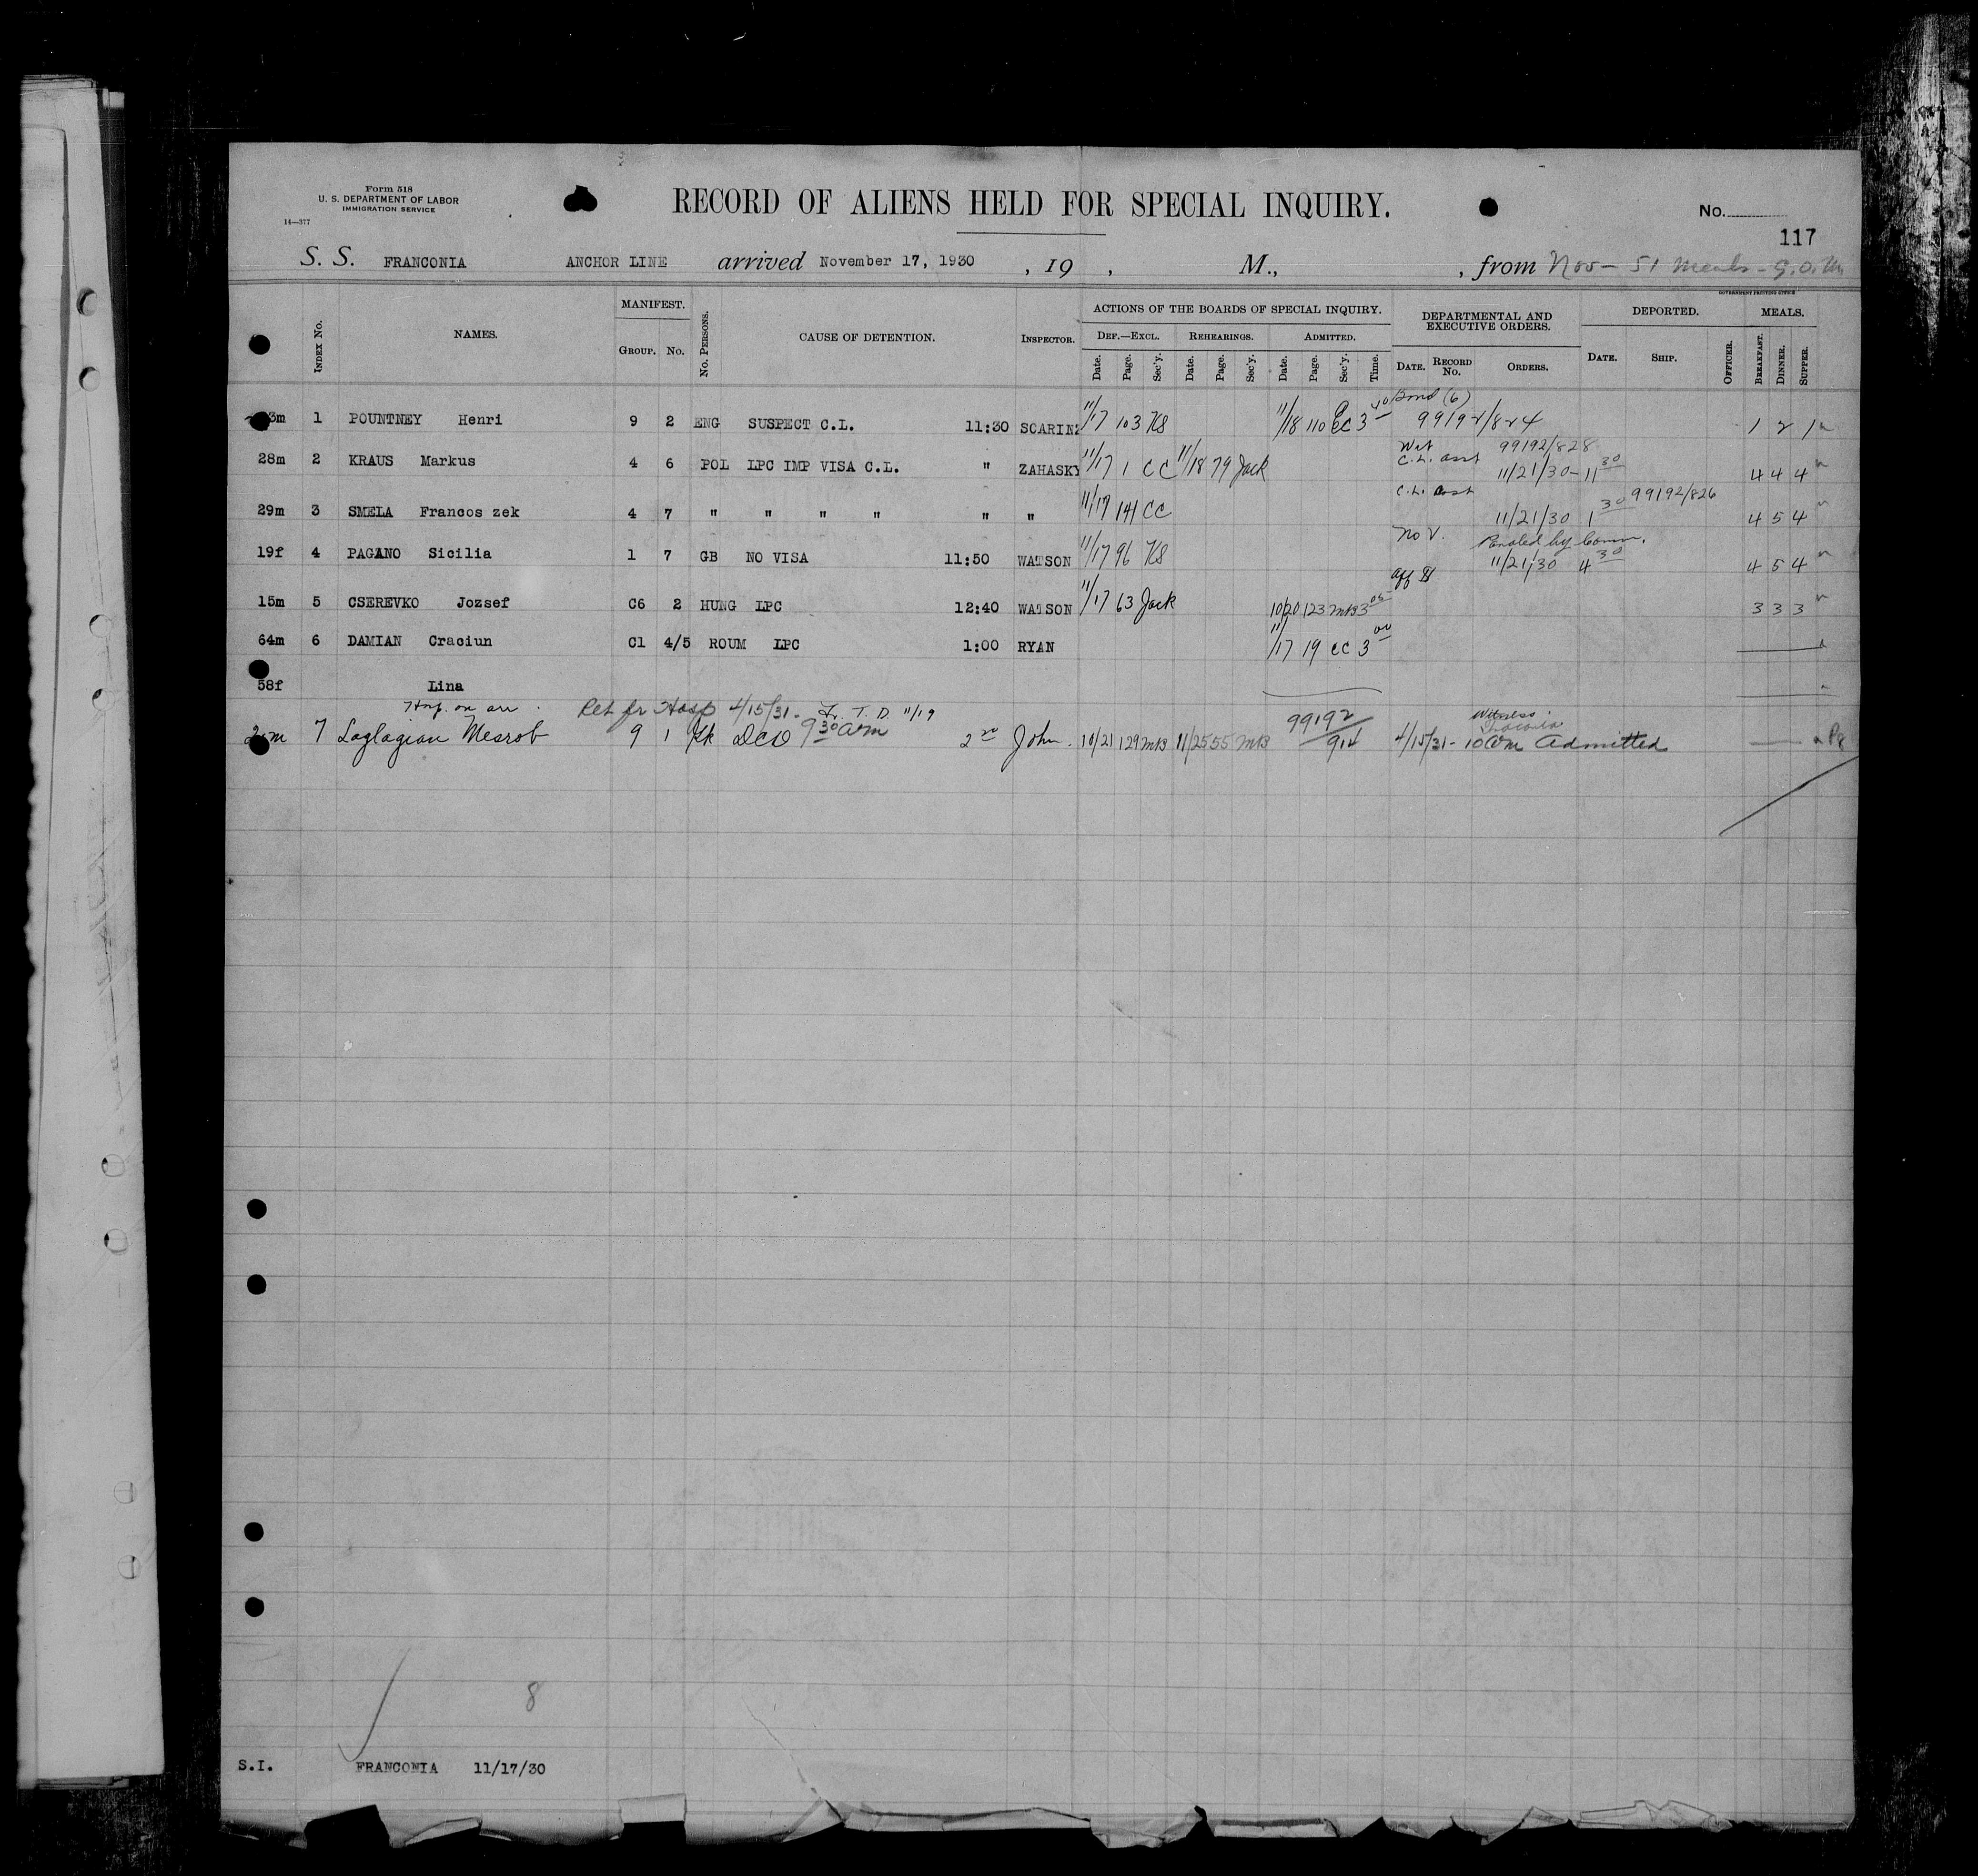 Form 518
U. S. DEPARTMENT OF LABOR
IMMIGRATION SERVICE
14—377
RECORD OF ALIENS HELD FOR SPECIAL INQUIRY.
No.
117
S. S. FRANCONIA ANCHOR LINE arrived November 17, 1930 , 19 , M., , from Nov - 51 Meals -
GOVERNMENT PRINTING OFFICE
INDEX NO. NAMES. MANIFEST. GROUP. NO. NO. PERSONS. CAUSE OF DETENTION. INSPECTOR. ACTIONS OF THE BOARDS OF SPECIAL INQUIRY. DEPARTMENTAL AND EXECUTIVE ORDERS. DEPORTED. MEALS.
DEF.—EXCL. REHEARINGS. ADMITTED.
Date. Page. Sec'y. Date. Page. Sec'y. Date. Page. Sec'y. Time. DATE. RECORD NO. ORDERS. DATE. SHIP. OFFICER. BREAKFAST. DINNER. SUPPER.
Bond (6)
3m 1 POUNTNEY Henri 9 2 ENG SUSPECT C.L. 11:30 SCARINZ 11/17 103 KS 11/18 110 CC 3 40 99192/824 1 2 1
99192/828
28m 2 KRAUS Markus 4 6 POL LPC IMP VISA C.L. " ZAHASKY 11/17 1 CC 11/18 79 Jack C.L. 11/21/30 - 11 30 4 4 4
C.L. 99192/826
29m 3 SMELA Francos zek 4 7 " " " " " " 11/17 141 CC 11/21/30 1 30 4 5 4
No V. Paroled by Comm.
19f 4 PAGANO Sicilia 1 7 GB NO VISA 11:50 WATSON 11/17 96 KS 11/21/30 4 30 4 5 4
aff
15m 5 CSEREVKO Jozsef C6 2 HUNG LPC 12:40 WATSON 11/17 63 Jack 10/20 123 MB 3 05 3 3 3
64m 6 DAMIAN Craciun C1 4/5 ROUM LPC 1:00 RYAN 11/17 19 CC 3 00
58f Lina
Hosp. on arr. Ret fr Hosp 4/15/31 - T. D. 11/19
9 30 am
Witness:
7 Laglagian Mesrob 9 1 DCO 2 John. 10/21 129 MB 11/25 55 MB 99192/914 4/15/31 - 10 am Admitted
8
S.I. FRANCONIA 11/17/30